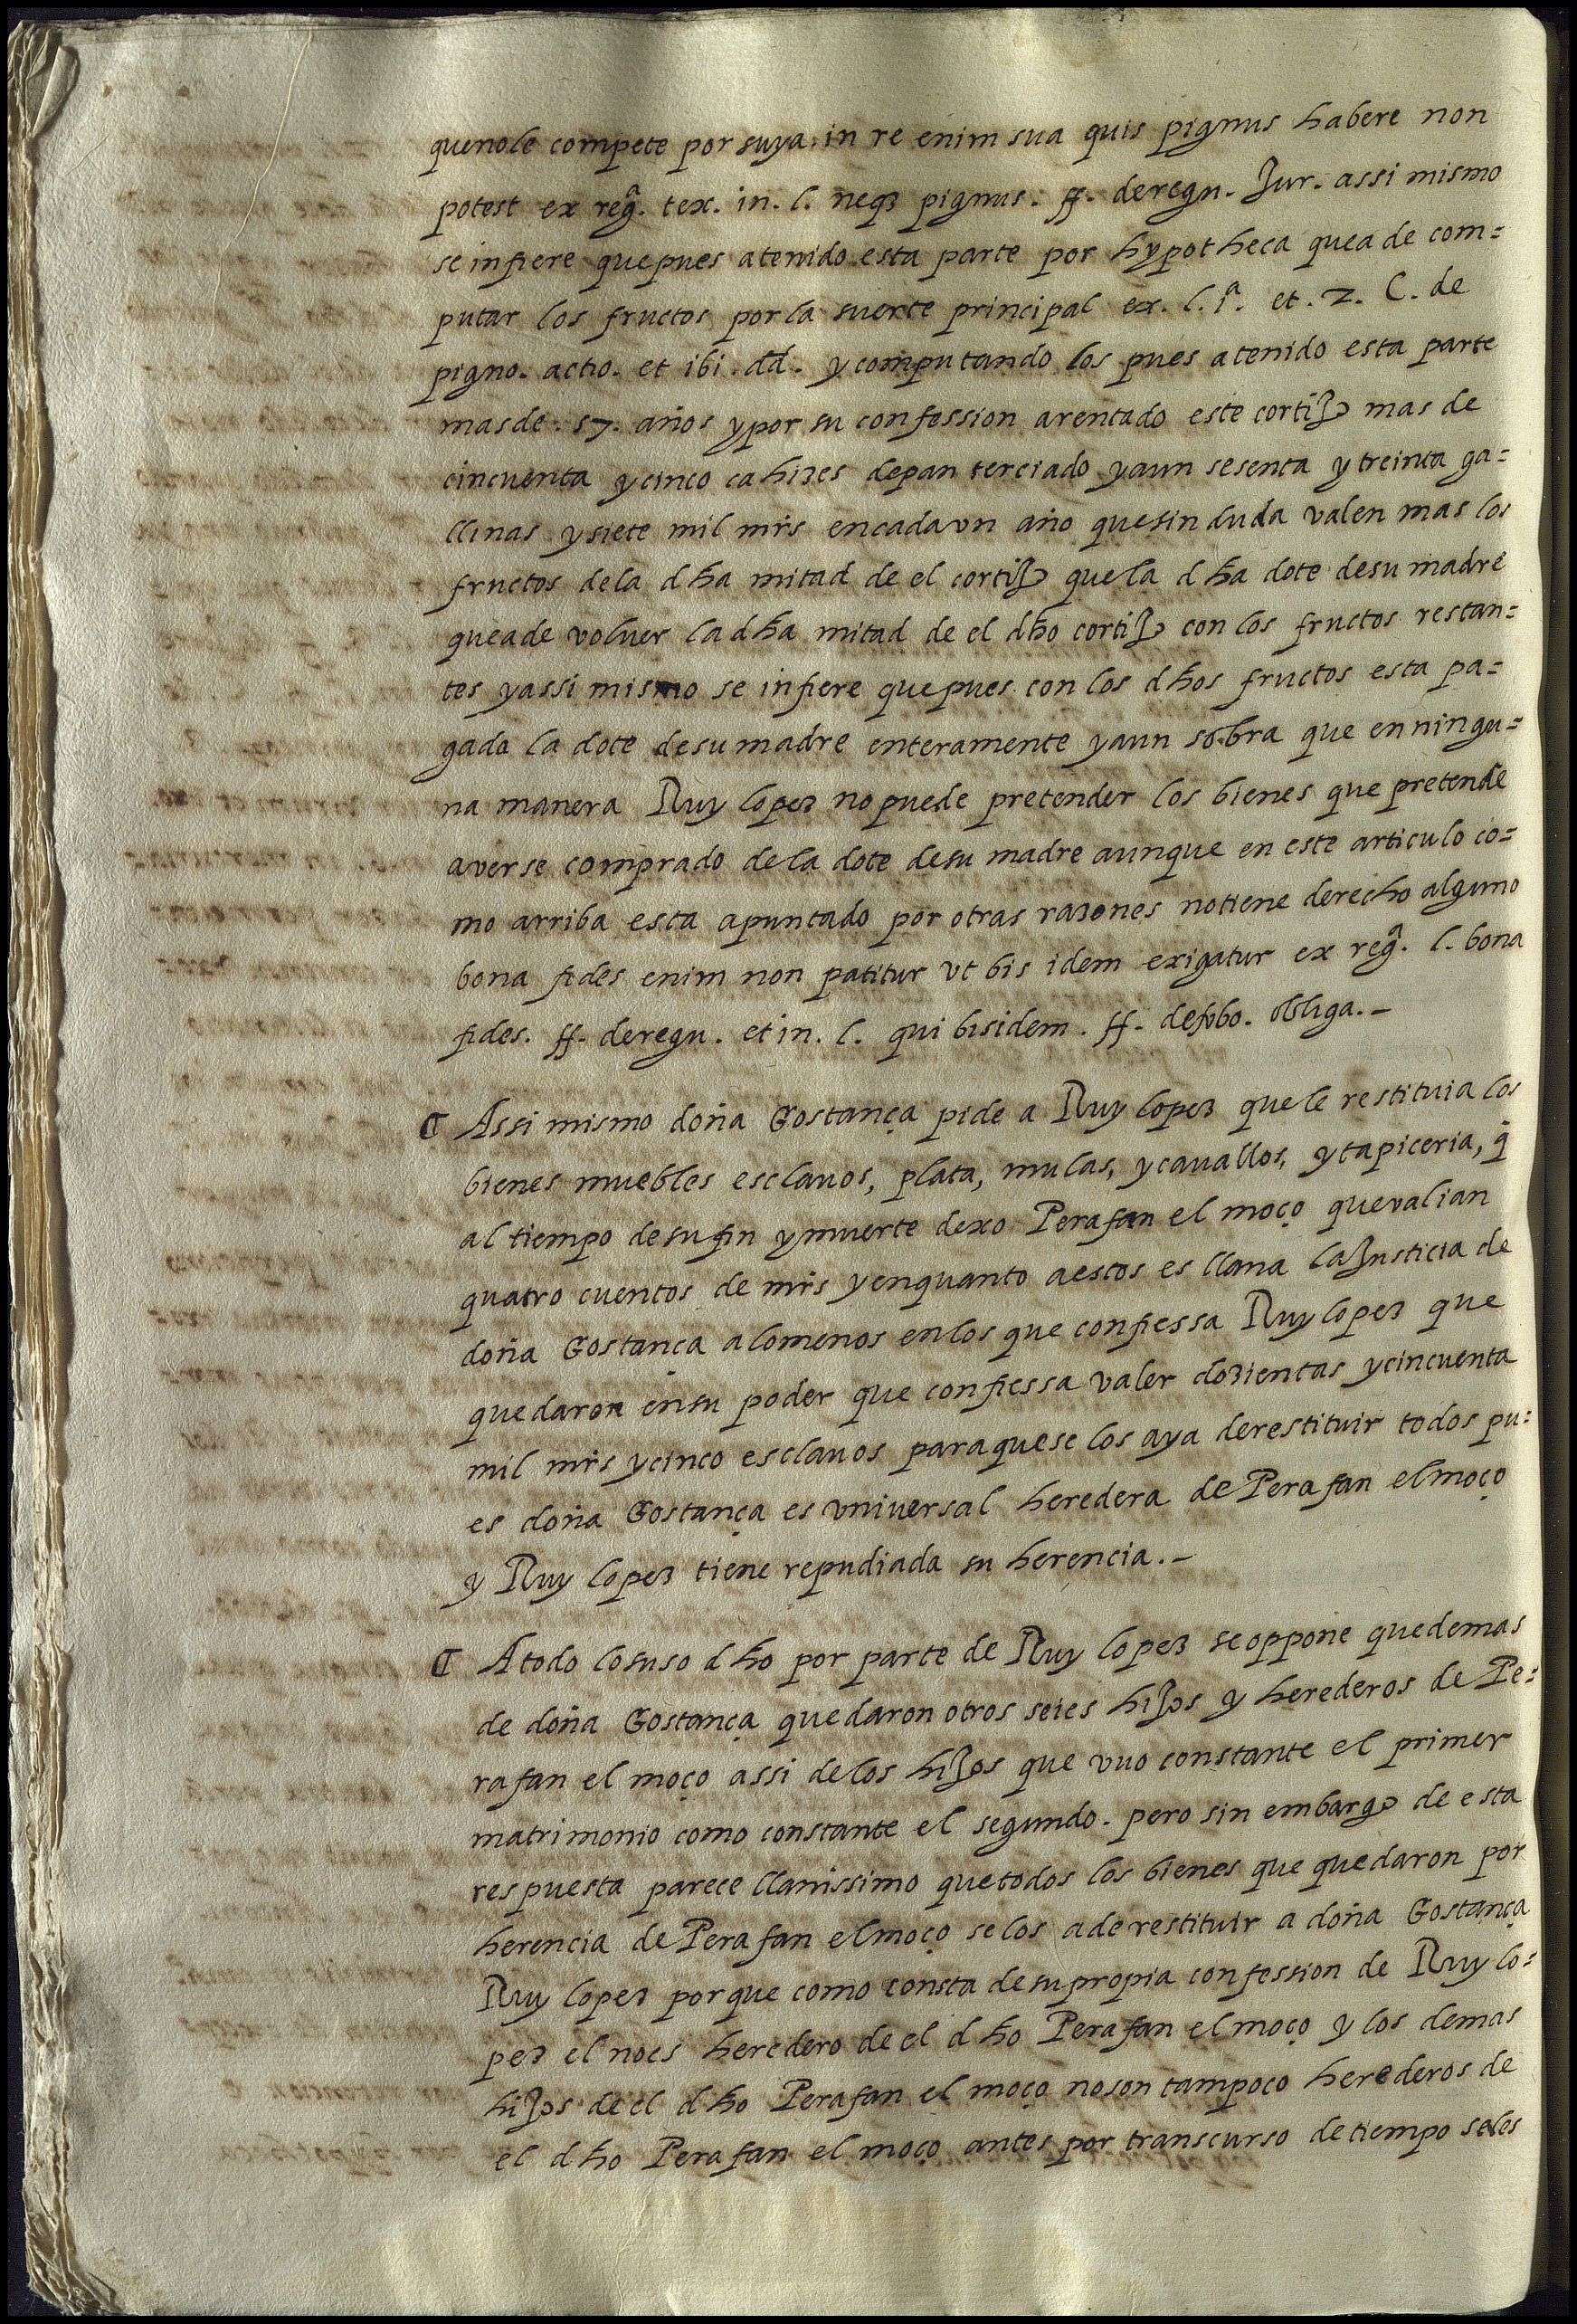 quenole compete por suya, in re enim sua quis pignus habere non
potest ex regª. tex. in. l. neqз pignus. ff. deregu. Jur. assi mismo
se infiere quepues atenido esta parte por hypotheca quea de com=
putar los fructos por la suerte principal ex. l. 1ª. et. 2. C. de
pigno. actio. et ibi. dd. y computando los pues atenido esta parte
masde. 57. años ypor su confession arentado este cortiJo mas de
cincuenta ycinco cahizes depan terciado yaun sesenta ytreinta ga=
llinas ysiete mil mrs encadavn año quesin duda valen mas los
fructos dela dha mitad de el cortiJo quela dha dote desu madre
queade voluer la dha mitad de el dho cortiJo con los fructos restan=
tes yassi mismo se infiere quepues con los dhos fructos esta pa=
gada la dote desu madre enteramente yaun sobra que enningu=
na manera Ruy lopez nopuede pretender los bienes que pretende
averse comprado dela dote desu madre aunque en este articulo co=
mo arriba esta apuntado por otras razones notiene derecho alguno
bona fides enim non patitur vt bis idem exigatur ex regª. l. bona
fides. ff. deregu. et in. l. qui bisidem. ff. devbo. obliga.-
¶ Assi mismo doña Gostança pide a Ruy lopez quele restituia los
bienes muebles esclauos, plata, mulas, ycauallos, ytapiceria, q̃
al tiempo desufin ymuerte dexo Perafan el moço quevalian
quatro cuentos de mrs yenquanto aestos es llana laJusticia de
doña Gostança alomenos enlos que confiessa Ruy lopez que
quedaron ensu poder que confiessa valer dozientas ycincuenta
mil mrs ycinco esclauos paraquese los aya derestituir todos pu=
es doña Gostança es vniversal heredera de Perafan elmoço
y Ruy lopez tiene repudiada su herencia.-
¶ Atodo losuso dho por parte de Ruy lopez seoppone quedemas
de doña Gostança quedaron otros seies hiJos y herederos de Pe=
rafan el moço assi delos hiJos que vuo constante el primer
matrimonio como constante el segundo. pero sin embargo de esta
respuesta parece llanissimo quetodos los bienes que quedaron por
herencia de Perafan elmoço selos aderestituir a doña Gostança
Ruy lopez porque como consta desupropia confession de Ruy lo=
pez el noes heredero de el dho Perafan elmoço y los demas
hiJos de el dho Perafan el moço noson tampoco herederos de
el dho Perafan el moço antes por transcurso detiempo seles